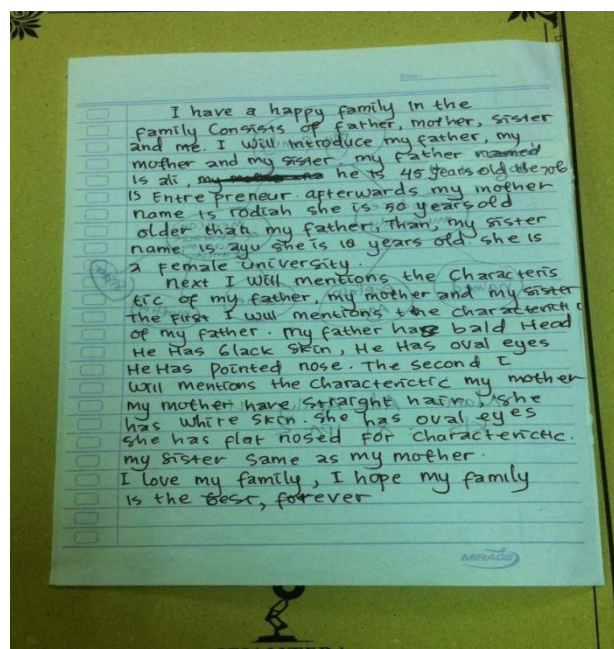 Date
I have a happy family In the
family Consists of father, mother, sister
and me. I will introduce my father, my
mother and my sister. my father named
Is ali, he is 45 years old the job
IS Entrepreneur. afterwards my mother
name is rodiah she is 50 years old
older than my father, Than, my sister
name is ayu she is 18 years old. she is
a female university.
next I will mentions the Characteris
tic of my father, my mother and my sister
The first I will mentions the characterictic
of my father. my father has bald Head
He Has black skin, He Has oval eyes
He Has pointed nose. The second I
will mentions the characterictic my mother
my mother have straight hair, she
has white skin. she has oval eyes
she has flat nosed For characterictic.
my sister same as my mother.
I love my family, I hope my family
is the best, forever
MIRAGE